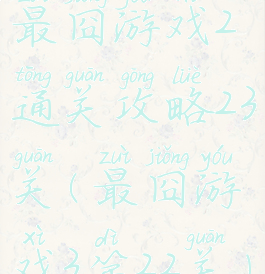 最囧游戏2
tōng guān gōng lüè
通关攻略23
guān zuì jiǒng yóu
关（最囧游
xì dì guān
戏3第22关）